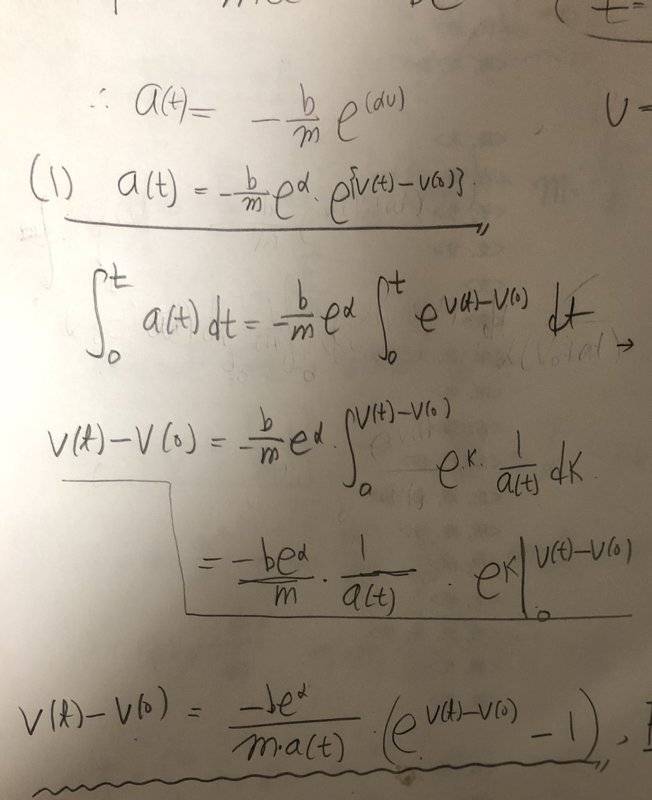 ∴ a(t) = - b/m e^(αv)
v =
(1) a(t) = - b/m e^α · e^{v(t) - v(0)}
∫₀^t a(t) dt = - b/m e^α ∫₀^t e^(v(t) - v(0)) dt →
v(t) - v(0) = - b/m e^α · ∫₀^(v(t) - v(0)) e^k · 1/a(t) dk
= -be^α/m · 1/a(t) · e^k |₀^(v(t) - v(0))
v(t) - v(0) = -be^α/(m·a(t)) · (e^(v(t) - v(0)) - 1),